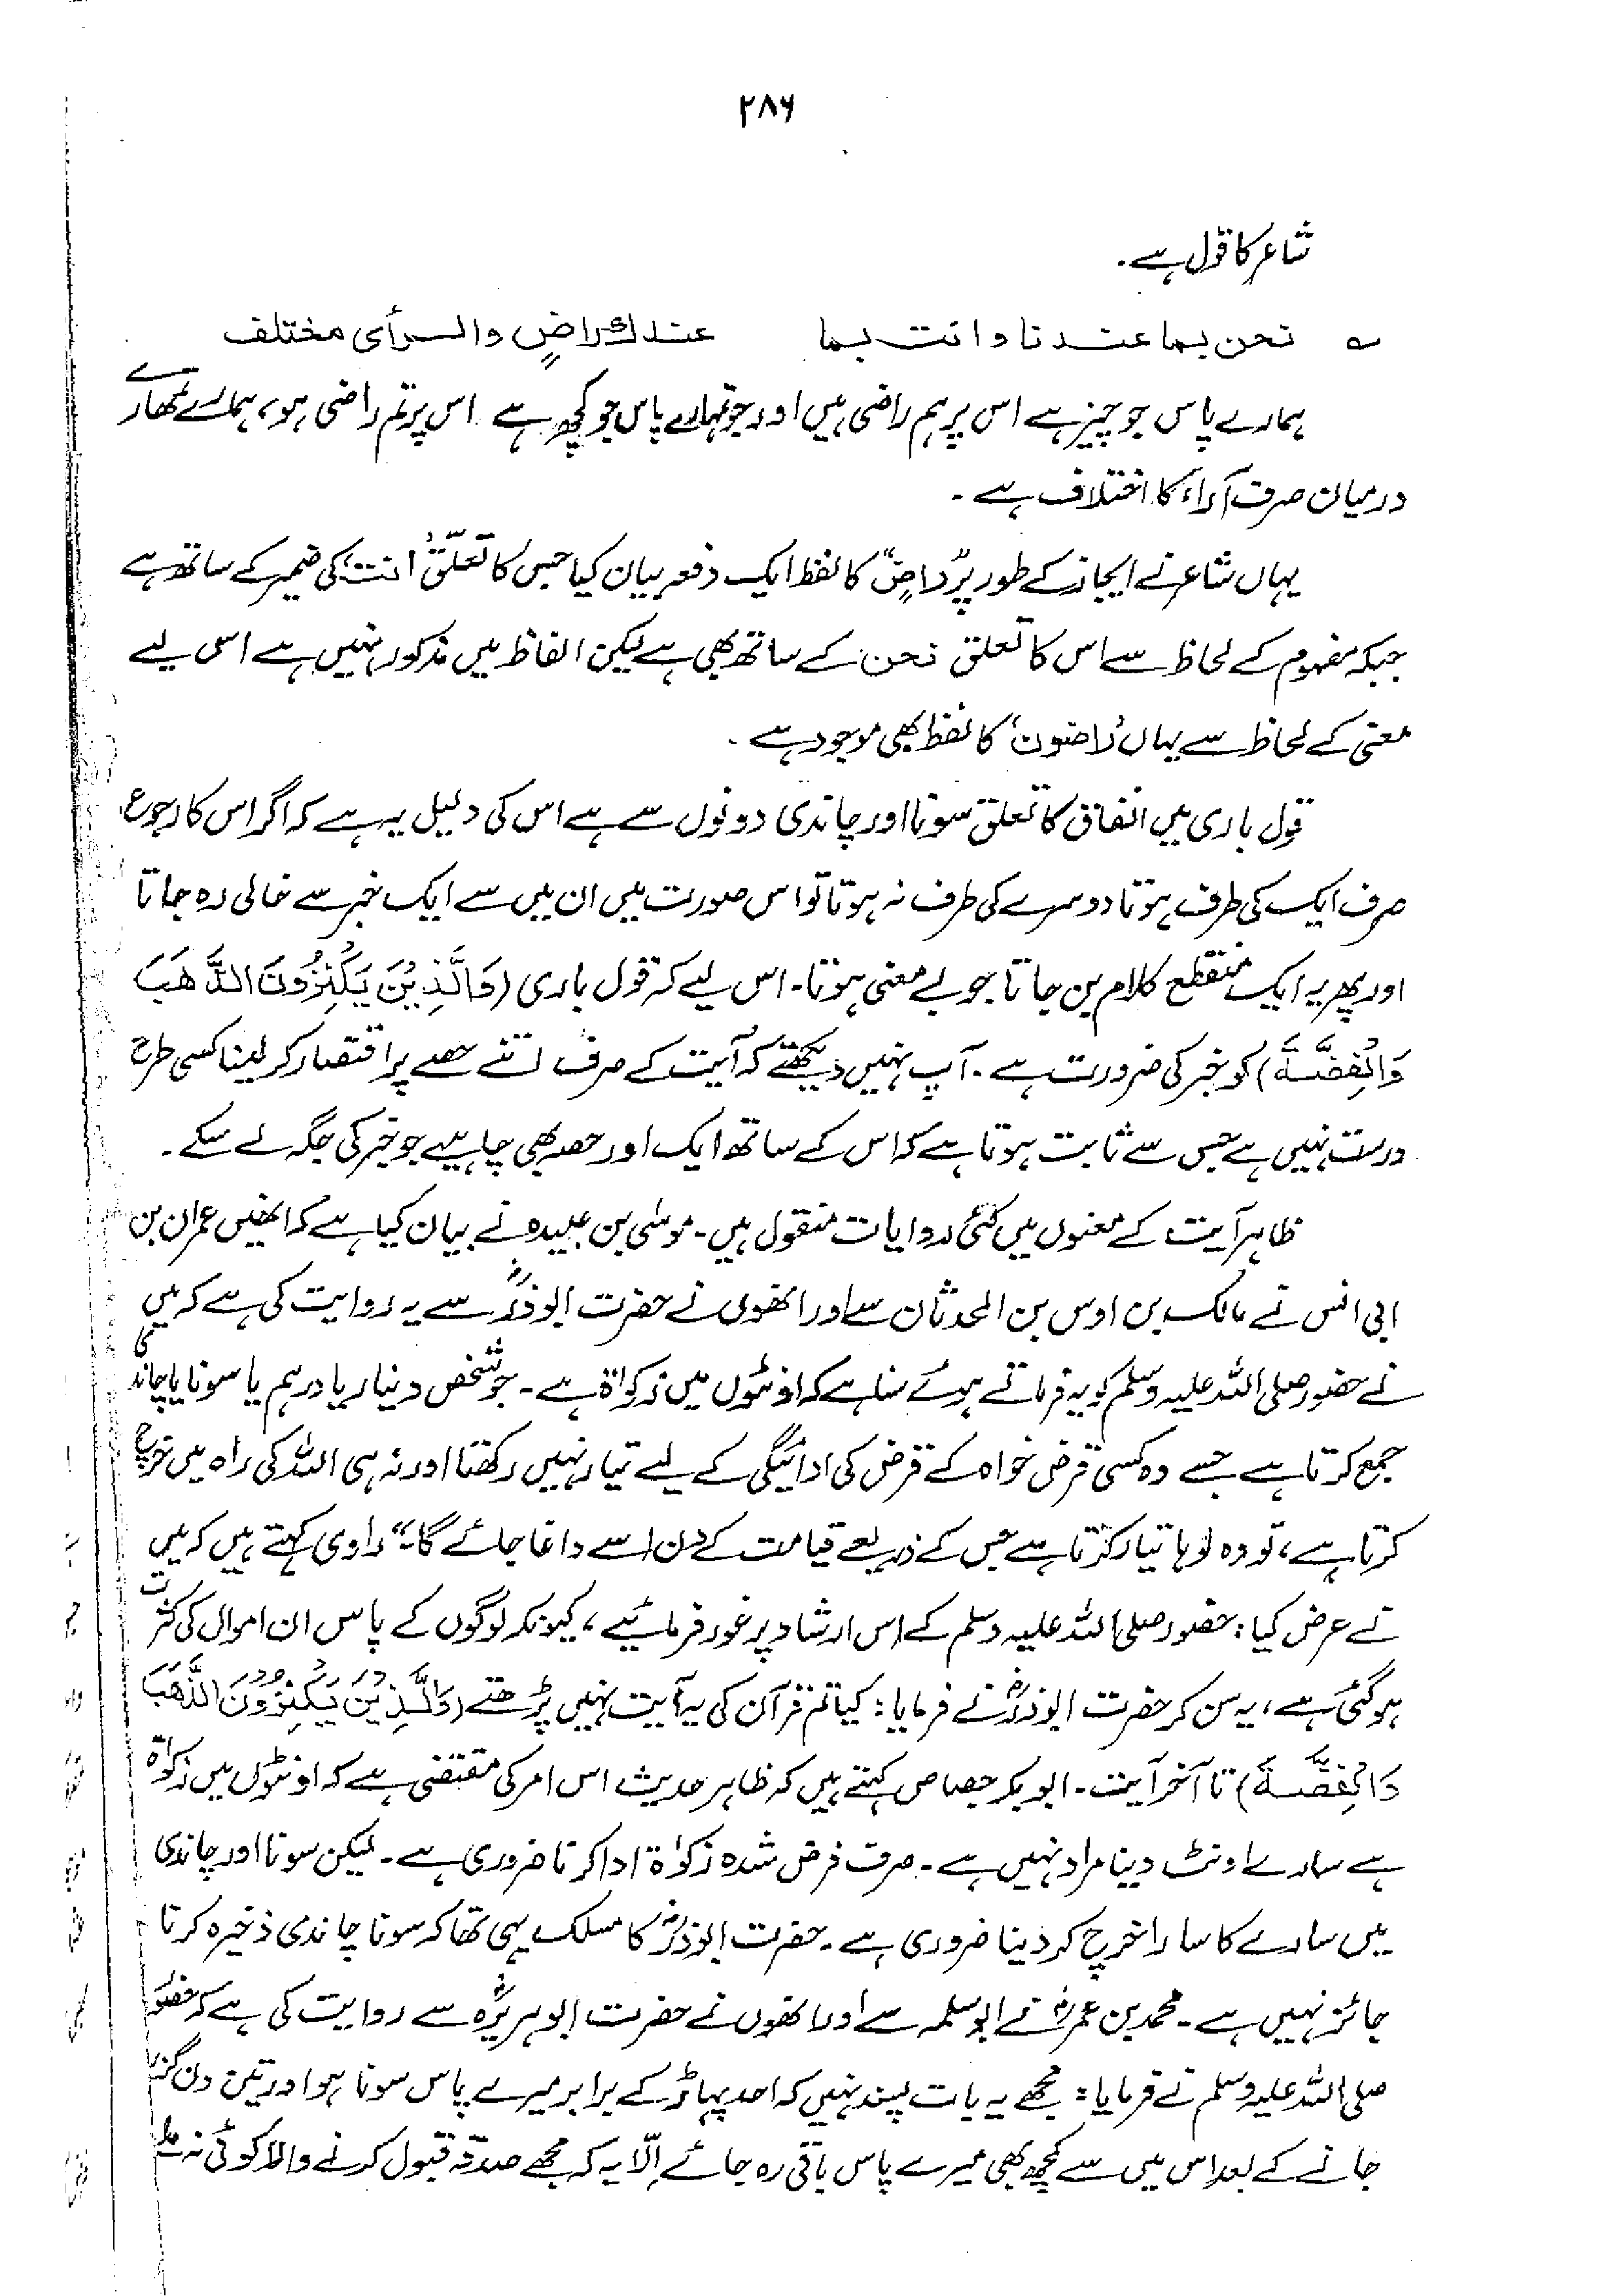 ۲۸۶
شاعر کا قول ہے۔
؎ نحن بما عندنا وانت بما عندك راضٍ والرأی مختلف
ہمارے پاس جو چیز ہے اس پر ہم راضی ہیں اور جو تمہارے پاس جو کچھ ہے اس پر تم راضی ہو، ہمارے تمھارے
درمیان صرف آراء کا اختلاف ہے۔
یہاں شاعر نے ایجاز کے طور پر "راضٍ" کا لفظ ایک دفعہ بیان کیا جس کا تعلق 'انت' کی ضمیر کے ساتھ ہے
جبکہ مفہوم کے لحاظ سے اس کا تعلق نحن کے ساتھ بھی ہے لیکن الفاظ میں مذکور نہیں ہے اس لیے
معنی کے لحاظ سے یہاں 'راضون' کا لفظ بھی موجود ہے۔
قول باری میں انفاق کا تعلق سونا اور چاندی دونوں سے ہے اس کی دلیل یہ ہے کہ اگر اس کا رجوع
صرف ایک کی طرف ہوتا دوسرے کی طرف نہ ہوتا تو اس صورت میں ان میں سے ایک خبر سے خالی رہ جاتا
اور پھر یہ ایک منقطع کلام بن جاتا جو بے معنی ہوتا۔ اس لیے کہ قول باری (وَالَّذِیْنَ یَكْنِزُوْنَ الذَّهَبَ
وَالْفِضَّةَ) کو خبر کی ضرورت ہے۔ آپ نہیں دیکھتے کہ آیت کے صرف اتنے حصے پر اقتصار کر لینا کسی طرح
درست نہیں ہے جس سے ثابت ہوتا ہے کہ اس کے ساتھ ایک اور حصہ بھی چاہیے جو خبر کی جگہ لے سکے۔
ظاہر آیت کے معنوں میں کئی روایات منقول ہیں۔ موسٰی بن عبیدہ نے بیان کیا ہے کہ انھیں عمران بن
ابی انس نے مالک بن اوس بن الحدثان سے اور انھوں نے حضرت ابوذرؓ سے یہ روایت کی ہے کہ میں
نے حضور صلی اللہ علیہ وسلم کو یہ فرماتے ہوئے سنا ہے کہ اونٹوں میں زکواۃ ہے۔ جو شخص دینار یا درہم یا سونا یا چاندی
جمع کرتا ہے جسے وہ کسی قرض خواہ کے قرض کی ادائیگی کے لیے تیار نہیں رکھتا اور نہ ہی اللہ کی راہ میں خرچ
کرتا ہے، تو وہ لوہا تیار کرتا ہے جس کے ذریعے قیامت کے دن اسے داغا جائے گا۔" راوی کہتے ہیں کہ میں
نے عرض کیا: حضور صلی اللہ علیہ وسلم کے اس ارشاد پر غور فرمائیے، کیونکہ لوگوں کے پاس ان اموال کی کثرت
ہوگئی ہے، یہ سن کر حضرت ابوذرؓ نے فرمایا: کیا تم قرآن کی یہ آیت نہیں پڑھتے (وَالَّذِیْنَ یَكْنِزُوْنَ الذَّهَبَ
وَالْفِضَّةَ) تا آخر آیت۔ ابوبکر جصاص کہتے ہیں کہ ظاہر حدیث اس امر کی مقتضی ہے کہ اونٹوں میں زکواۃ
ہے سارے اونٹ دینا مراد نہیں ہے۔ صرف فرض شدہ زکواۃ ادا کرنا ضروری ہے۔ لیکن سونا اور چاندی
میں سارے کا سارا خرچ کر دینا ضروری ہے۔ حضرت ابوذرؓ کا مسلک یہی تھا کہ سونا چاندی ذخیرہ کرنا
جائز نہیں ہے۔ محمد بن عمرو نے ابوسلمہ سے اور انھوں نے حضرت ابوہریرہؓ سے روایت کی ہے کہ حضور
صلی اللہ علیہ وسلم نے فرمایا: مجھے یہ بات پسند نہیں کہ احد پہاڑ کے برابر میرے پاس سونا ہو اور تین دن گذر
جانے کے بعد اس میں سے کچھ بھی میرے پاس باقی رہ جائے اِلّا یہ کہ مجھے صدقہ قبول کرنے والا کوئی نہ ملے